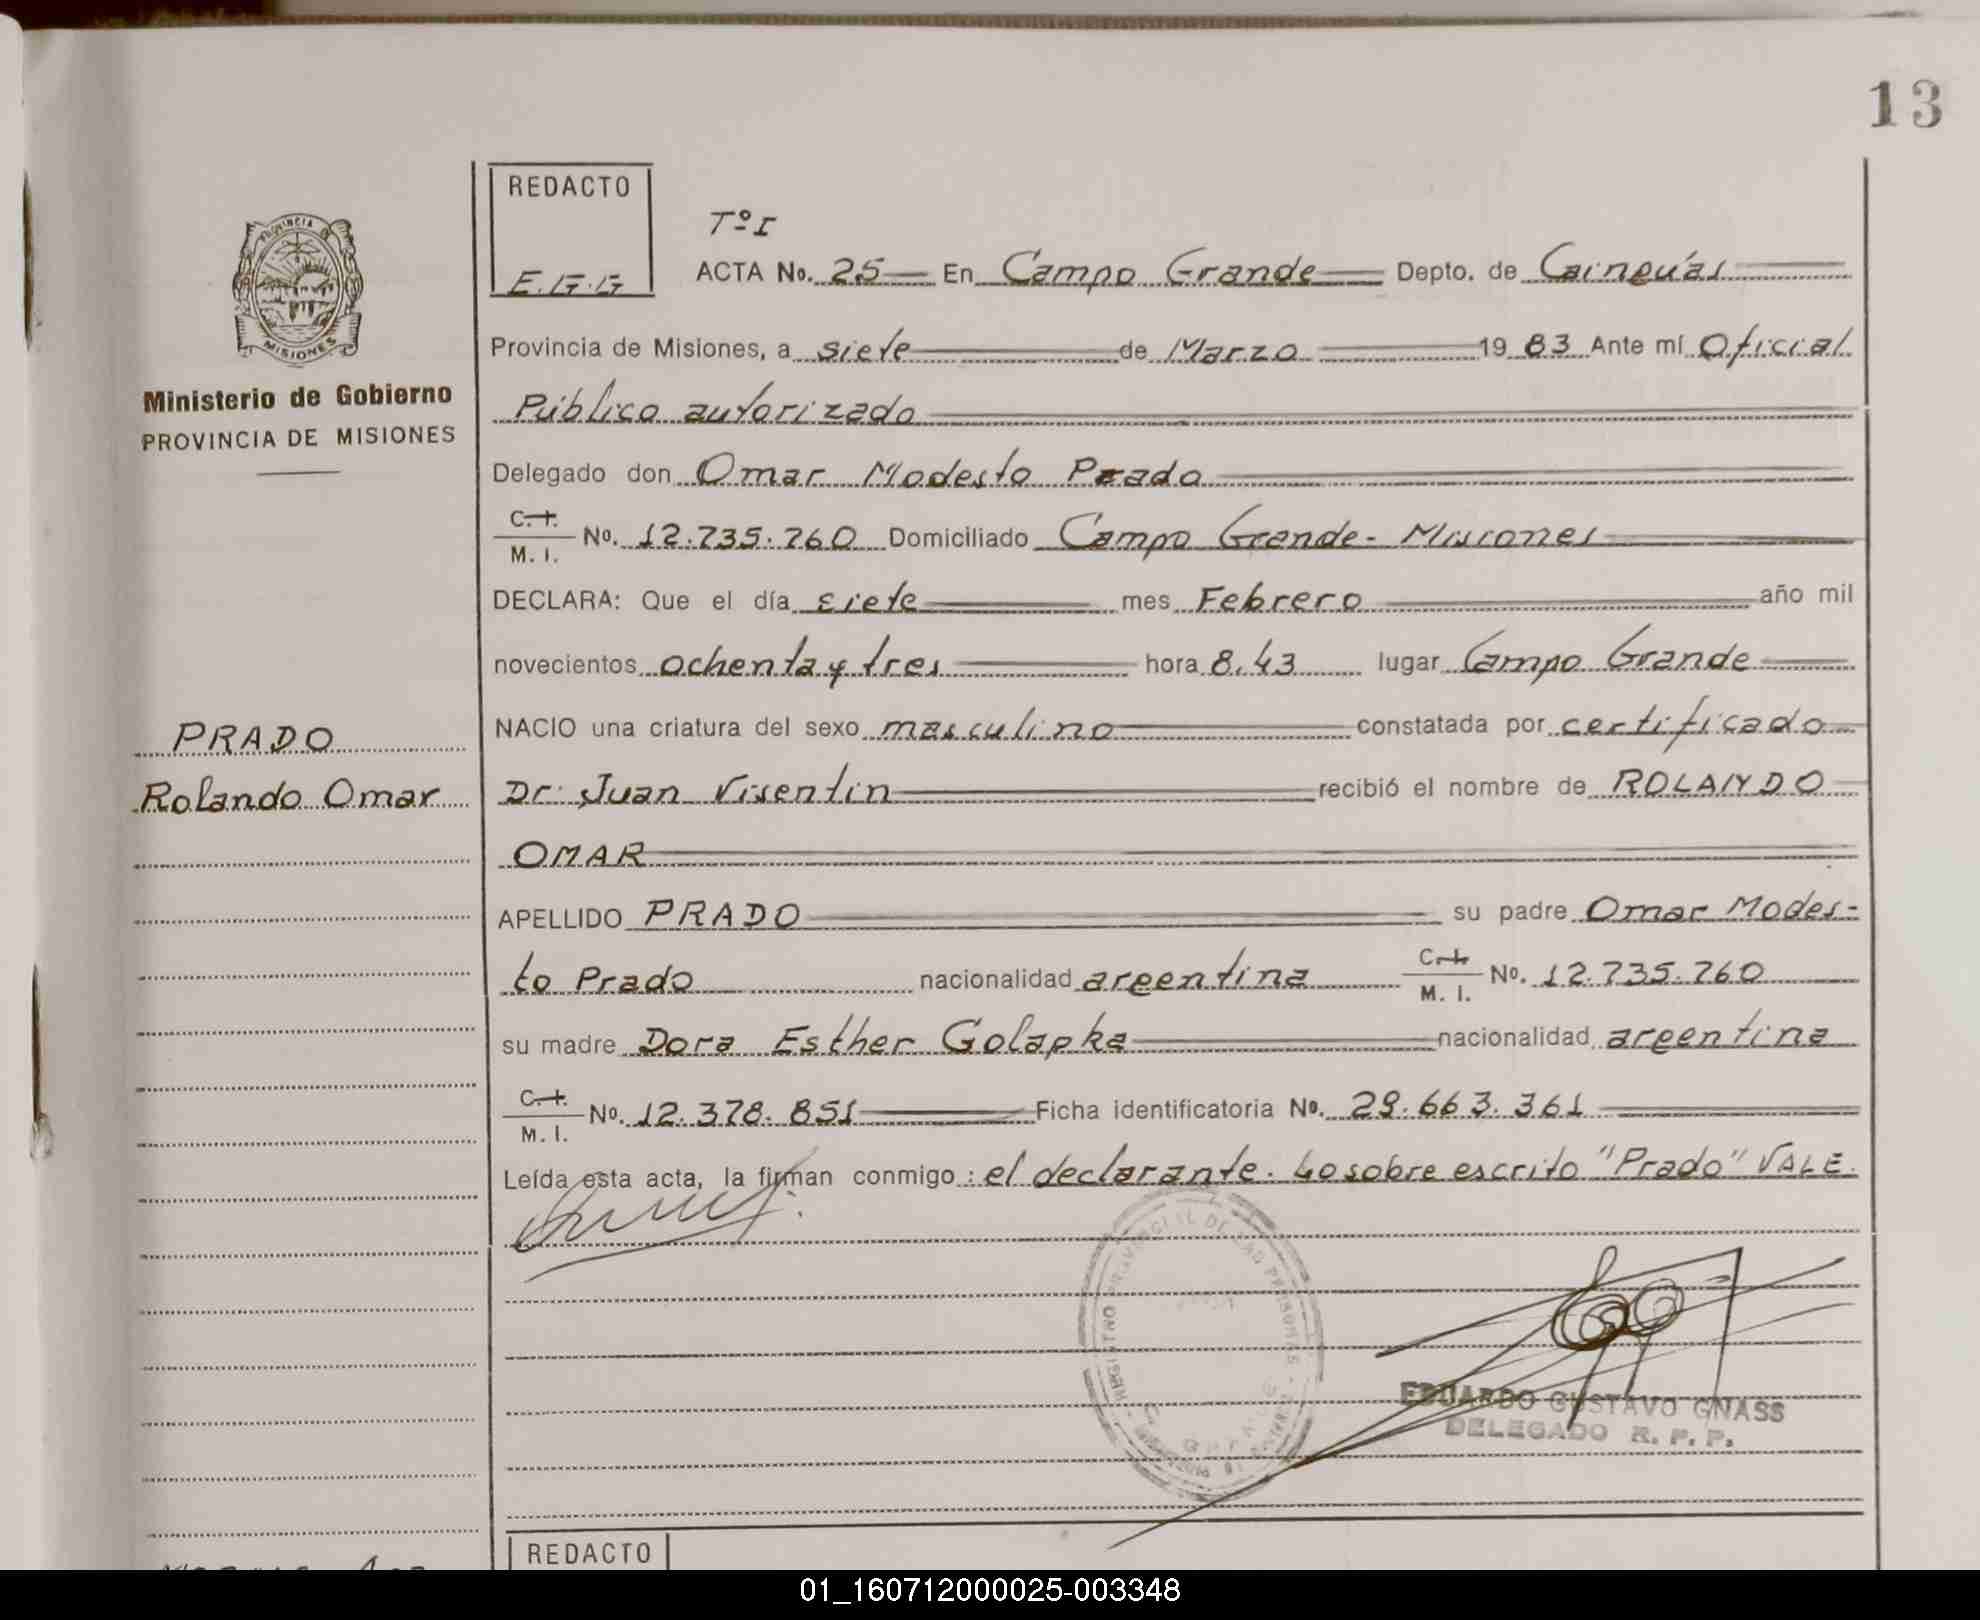 13
PROVINCIA DE
MISIONES
Ministerio de Gobierno
PROVINCIA DE MISIONES
PRADO
Rolando Omar
REDACTO
E.G.G
Tº I
ACTA No. 25 En Campo Grande Depto. de Cainguás
Provincia de Misiones, a siete de Marzo 19 83 Ante mí Oficial
Público autorizado
Delegado don Omar Modesto Prado
C. I. M. I. No. 12.735.760 Domiciliado Campo Grande - Misiones
DECLARA: Que el día siete mes Febrero año mil
novecientos ochenta y tres hora 8.43 lugar Campo Grande
NACIO una criatura del sexo masculino constatada por certificado
Dr. Juan Visentin recibió el nombre de ROLANDO
OMAR
APELLIDO PRADO su padre Omar Modes-
to Prado nacionalidad argentina C. I. M. I. No. 12.735.760
su madre Dora Esther Golapka nacionalidad argentina
C. I. M. I. No. 12.378.851 Ficha identificatoria No. 29.663.361
Leída esta acta, la firman conmigo: el declarante. Lo sobre escrito "Prado" VALE.
REGISTRO PROVINCIAL DE LAS PERSONAS
EDUARDO GUSTAVO GNASS
DELEGADO R. P. P.
REDACTO
01_160712000025-003348